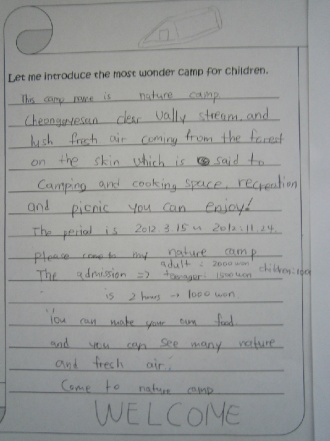 Let me introduce the most wonder camp for children.
This camp name is nature camp
Cheongyesan clear vally stream, and
lush fresh air coming from the forest
on the skin which is said to
Camping and cooking space, recreation
and picnic you can enjoy!
The period is 2012.3.15 ~ 2012.11.24.
please come to my nature camp
The admission => adult : 2000 won
teenager : 1500 won children :
is 2 hours → 1000 won
You can make your own food
and you can see many nature
and fresh air.
Come to nature camp
WELCOME